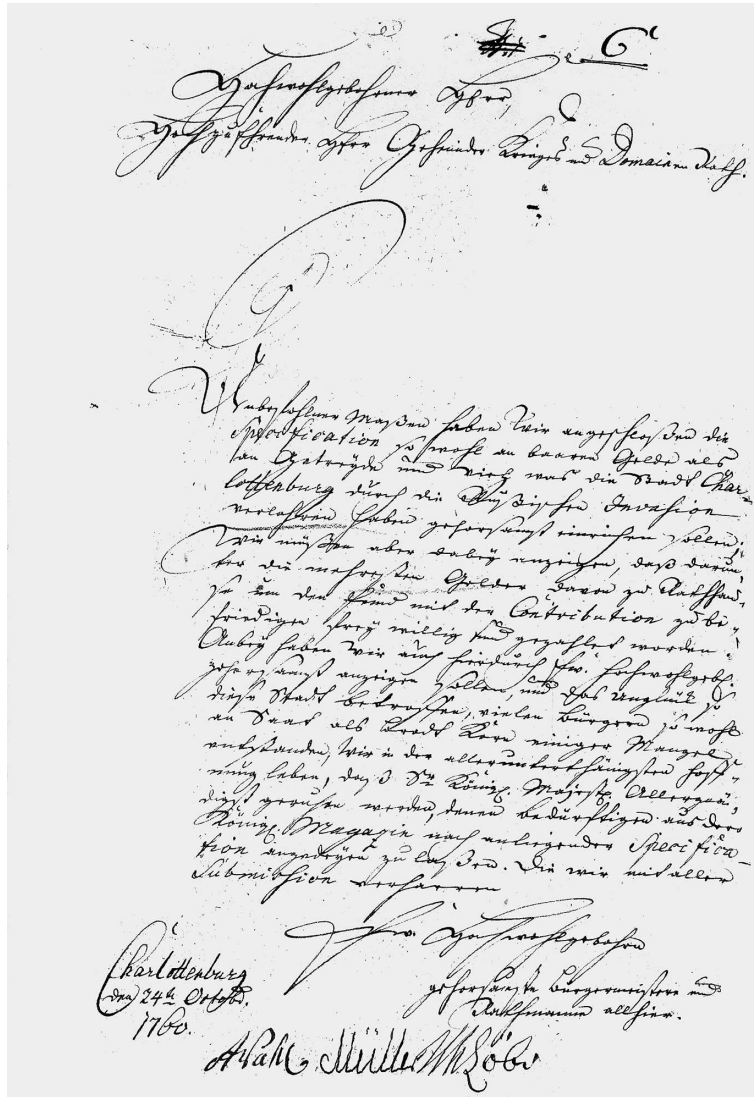 6
Hochwohlgebohrner Herr,
Hochzuehrender Herr Geheimder Krieges und Domainen Rath.
Anbefohlner Maßen haben Wir angeschloßen die
Specification so wohl an baaren Gelde als
an Getreyde und vieh was die Stadt Char-
lottenburg durch die Rußischen Invasion
verlohren haben gehorsamst einreichen sollen.
Wir müßen aber dabey anzeigen, daß darun-
ter die mehresten Gelder davon zu Rathhau-
se um den Feind mit der Contribution zu be-
friedigen frey willig sind gezahlet worden.
Anbey haben Wir auch hierdurch Ew. Hochwohlgeb.
gehorsamst anzeigen sollen, und das Unglück so
diese Stadt betroffen, vielen Bürgern so wohl
an Saat als Brodt Korn einiger Mangel
entstanden, Wir in der allerunterthänigsten Hoff-
nung leben, daß Sr. Königl. Majestt. Allergnä-
digst geruhen werden, denen bedürftigen aus dero
Königl. Magazin nach anliegender Specifica-
tion angedeyen zu laßen. Die wir mit aller
Submission verharren
Ew. Hochwohlgebohrn
Charlottenburg
den 24ten Octobr.
1760.
gehorsamste Bürgermeistere und
Rathmanne allhier.
Müller